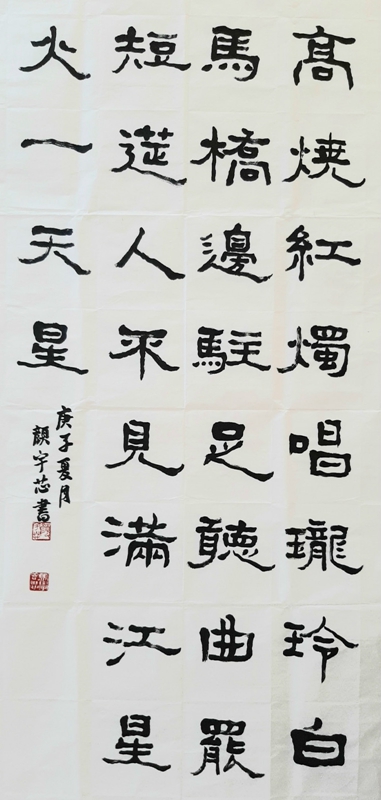 髙燒紅燭唱瓏玲白
馬橋邊駐足聽曲罷
短筵人不見滿江星
火一天星
庚子夏月
顏宇芯書